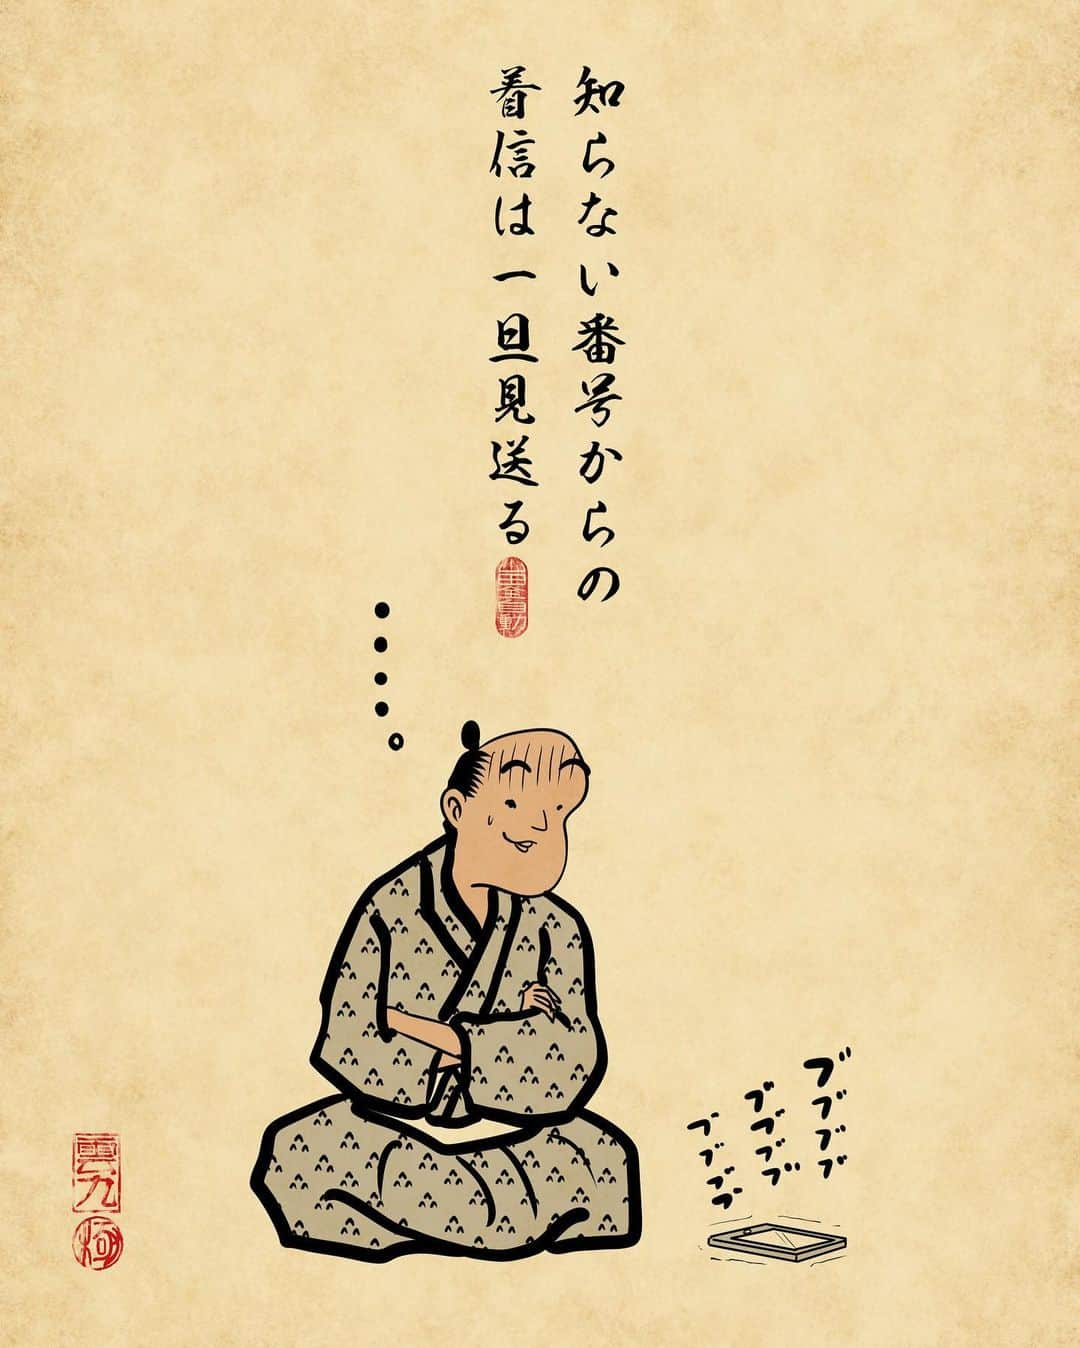 知らない番号からの
着信は一旦見送る
ブブブブ
ブブブブ
ブブブブ